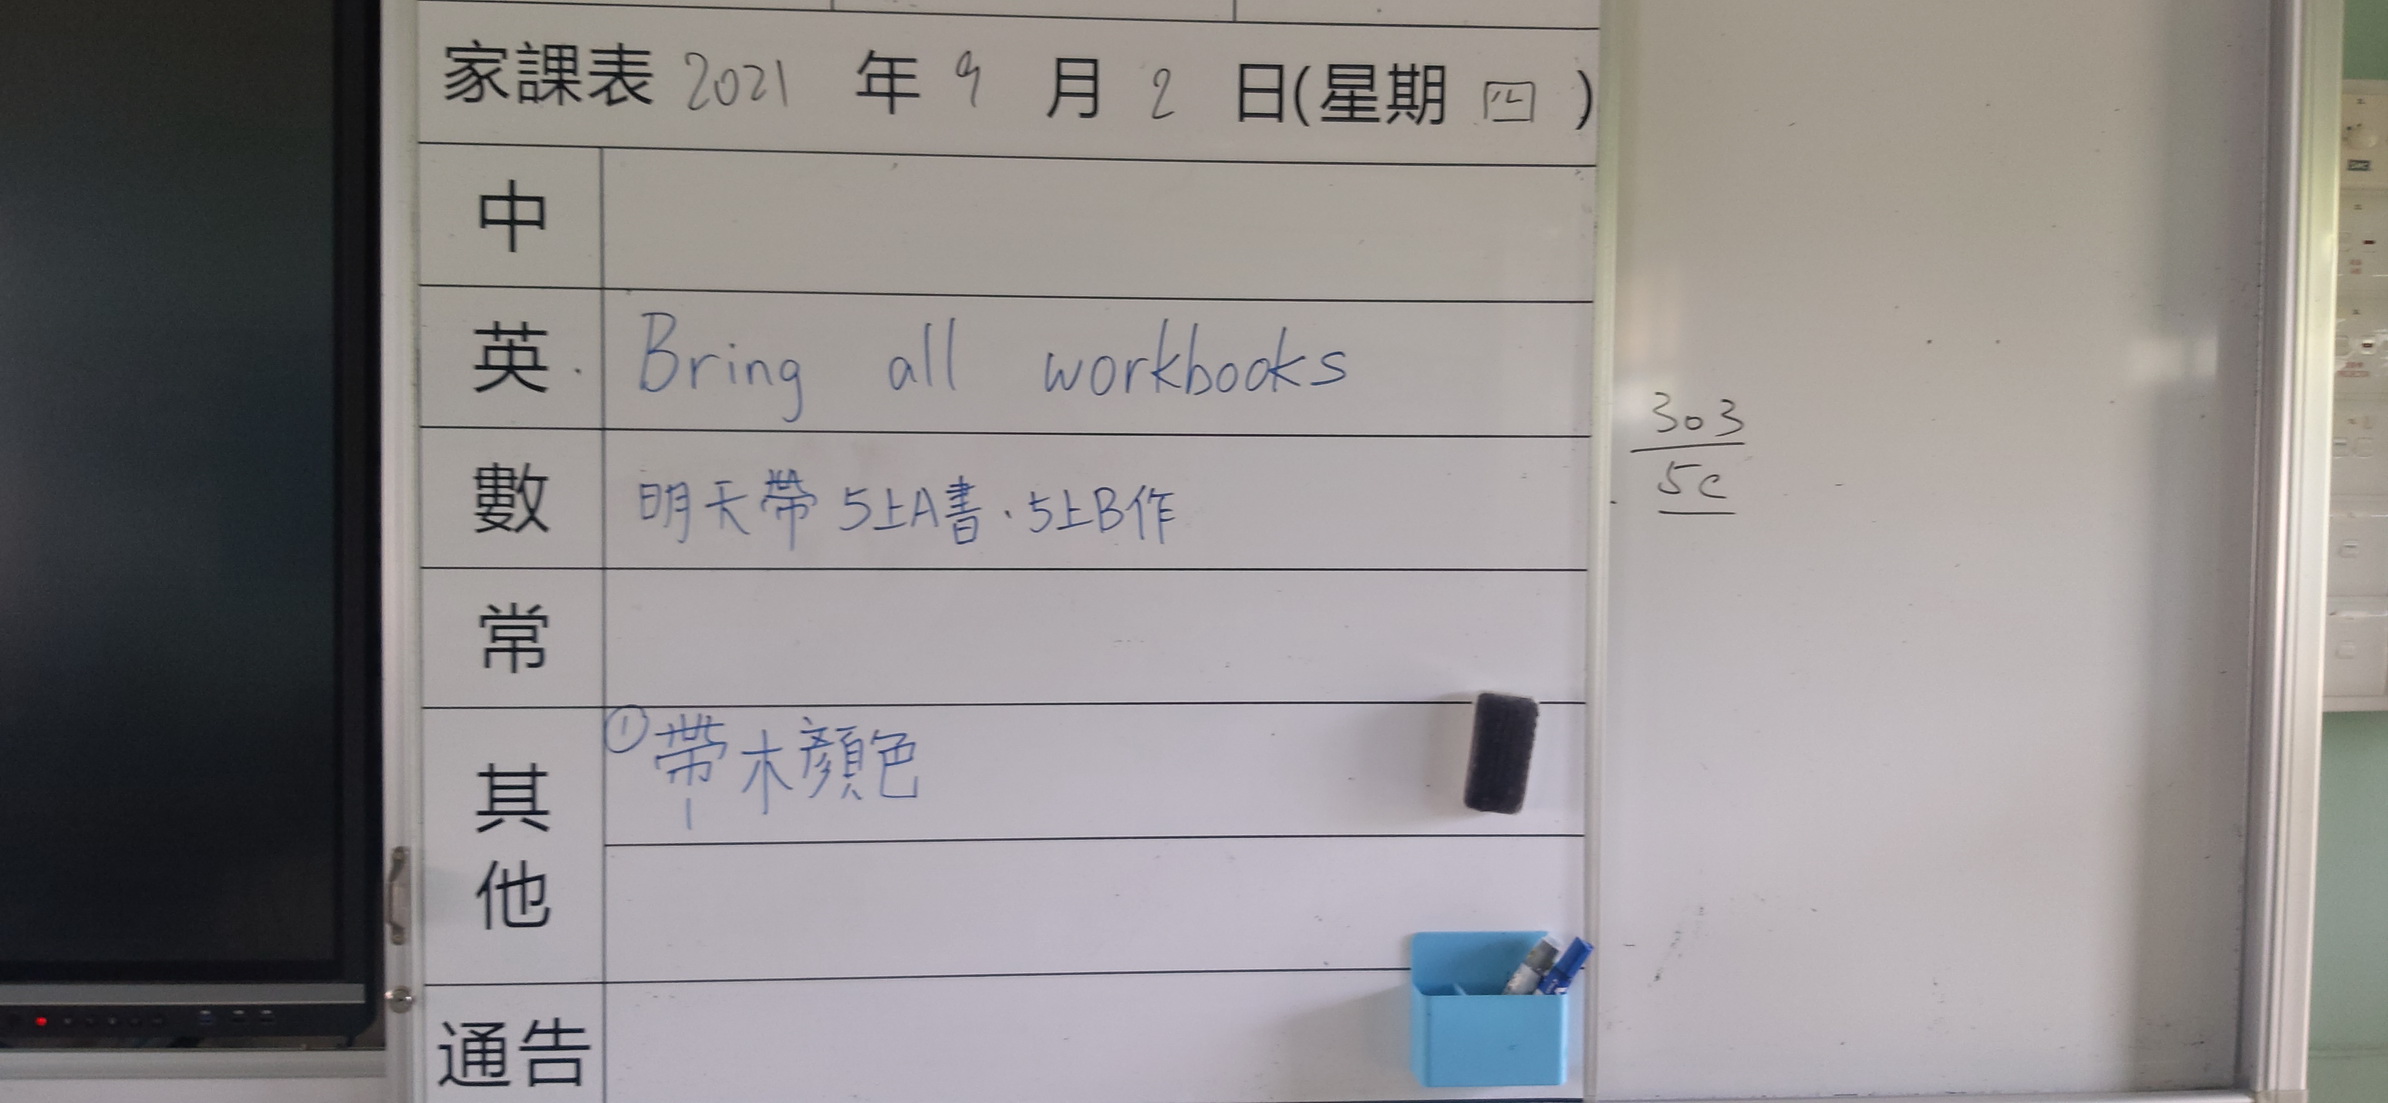 家課表 2021 年 9 月 2 日(星期 四 )
中
英 Bring all workbooks
數 明天帶 5上A書、5上B作
常
其他 ①帶木顏色
通告
303
5C